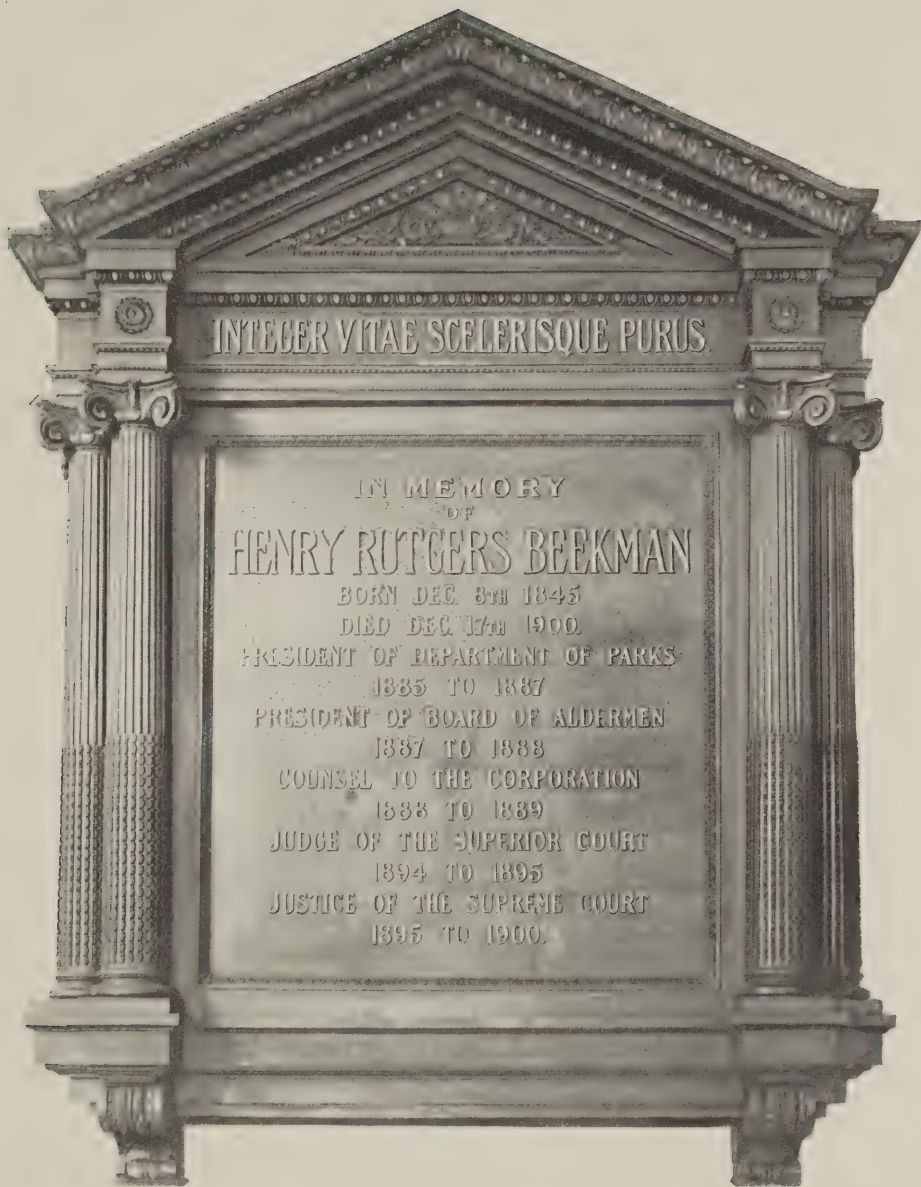 INTEGER VITAE SCELERISQUE PURUS.
IN MEMORY
OF
HENRY RUTGERS BEEKMAN
BORN DEC. 8TH 1845
DIED DEC. 17TH 1900.
PRESIDENT OF DEPARTMENT OF PARKS
1885 TO 1887
PRESIDENT OF BOARD OF ALDERMEN
1887 TO 1888
COUNSEL TO THE CORPORATION
1888 TO 1889
JUDGE OF THE SUPERIOR COURT
1894 TO 1895
JUSTICE OF THE SUPREME COURT
1895 TO 1900.